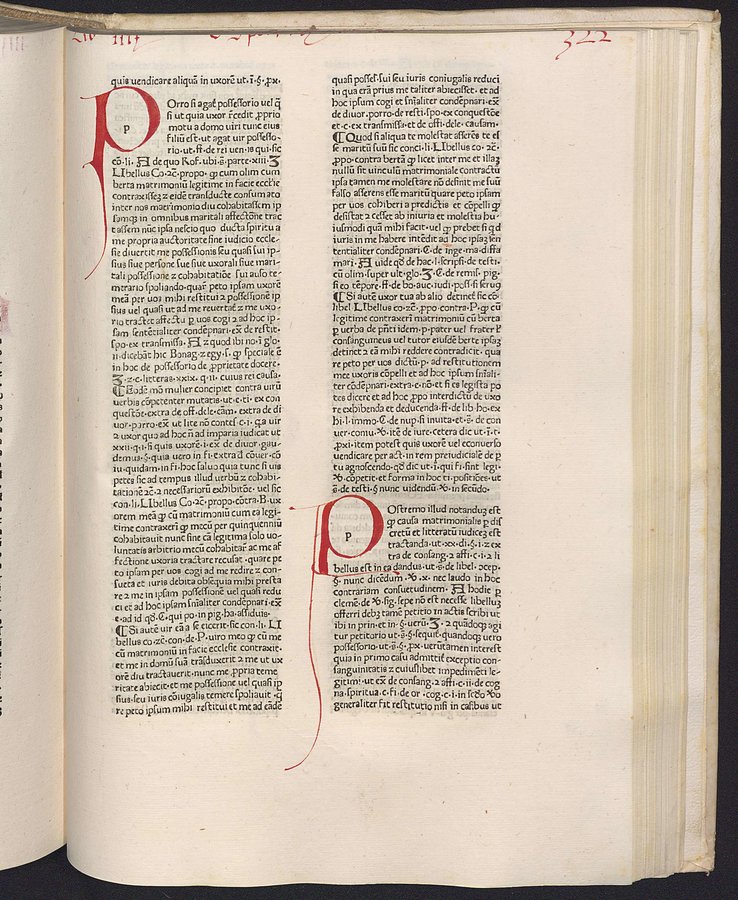 Lib IIII
322
quis vendicare aliquā in uxorē ut.i.§.ꝓx.
POrro si agat̃ possessorio vel q̃
P
si ut quia uxor r̃cedit ꝓprio
motu a domo viri tunc eius
filiū est.ut agat vir possesso-
rio.ut.ff.de rei ven.is qui.sic
cō.li. A de quo Rof.ubi.s̄.parte.xiii.Ʒ
LIbellus Co.2c̄.propo.ꝙ cum olim cum
berta matrimoniū legitime in facie ecclie
contraxisseʒ 2 eidē transducte consumato
inter nos matrimonio diu cohabitassem ip
samqʒ in omnibus maritali affectōne trac
tassem nūc ipsa nescio quo ducta spiritu a
me propria auctoritate sine iudicio eccle-
sie divertit me possessionis seu quasi iui ip-
sius sive persone sue sive uxorali sive mari-
tali possessione 2 cohabitatiōe sui auso te-
merario spoliando.quar̄ peto ipsam uxorē
meā per vos mihi restitui 2 possessionē ip
sius vel quasi ut ad me revertat̃ 2 me uxo-
rio tractet affectu ꝑ vos cogi 2 ad hoc ip-
sam sententialiter condēpnari.ex̄ de restit-
spo.ex transmissa. A z quod ibi no.i glo-
ii.dicebāt hic Bonag.z egy.s.ꝙ speciale ē
in hoc de possessorio de ꝓprietate docere.
Ʒ.z.c.litteras.xxix.q.ii.cuius rei causa.
¶Eodē mō mulier concipiet contra virū
verbis cōpetenter mutatis.ut e.ti.ex con
questōe.extra de off.dele.cām.extra de di
vor.porro.ex̄ ut lite nō contes.c.i.q̄a vir
2 uxor quo ad hoc nō ad imparia iudicat ut
xxii.q.i.si quis uxorē.i.ex̄ de divor.gau-
demus.§.quia vero in fi.extra d̄ cōver.cō
iu.quidam.in fi.hoc salvo quia tunc si vis
petes sic ad tempus illud verbū z cohabi-
tationē 2c̄.2 necessariorū exhibitōe.vel sic
con.li.LIbellus Co.2c̄.propo.cōtra.B.ux
orem meā ꝙ cū matrimoniū cum ea legi-
time contraxerī ꝙ mecū per quinquenniū
cohabitavit nunc sine cā legitima solo vo-
luntatis arbitrio mecū cohabitar̄ ac me af
fectione uxoria tractare recusat.quare pe
to ipsam per vos cogi ad me redire 2 con-
sueta et iuris debita obseqia mihi presta
re 2 me in ipsam possessionē vel quasi redu
ci et ad hoc ipsam sñialiter condēpnari ex̄
e.ad id qd̄.C.qui po.in pig.ha.assiduis.
¶Si autē vir eā a se eicerit.sic con.li. LI
bellus co.2c̄.con.de.P.viro meo ꝙ cū me
cū matrimoniū in facie ecclesie contraxit-
et me in domū suā trāsduxerit 2 me ut ux
orē diu tractaverit.nunc me ꝓpria teme
ritate abiecit.et me possessione vel quasi ip
sius.seu iuris cōiugalis temere spoliavit.q̄
re peto ipsum mihi restitui et me ad eādē
quasi posses.sui seu iuris coniugalis reduci
in qua erā prius me taliter abiecisset.et ad
hoc ipsum cogi et sñialiter condēpnari.ex̄
de divor.porro.de resti.spo.ex conquestōe
et c.ex transmissa.et de offi.dele.causam.
¶Quod si aliqua te molestat asserēs te es
se maritū suū sic conci.li.LIbellus co.2c̄.
ꝓpo.contra bertā ꝙ licet inter me et illaʒ
nullū sit vinculū matrimoniale contractū
ipsa tamen me molestare nō definit me suū
falso asserens esse maritū quare peto ipsam
per vos cohiberi a predictis et cōpelli ꝙ
desistat 2 cesset ab iniuria et molestia hu-
iusmodi quā mihi facit.vel ꝙ prebet si qd
iuris in me habere intēdit ad hoc ipsaʒ sen
tentialiter condēpnari.C.de inge.ma.diffa
mari. A vide qd de hac.l.scripsi.de testi.
cū olim.super ult.glo. Ʒ.C.de remis.pig-
si eo tēpore.ff.de bo.auc.iudi.poss.si servꝯ
¶Si autē uxor tua ab alio detinet̃ sic cō-
libel.LIbellus Co.2c̄.ꝓpo contra.P.ꝙ cū
legitime contraxeri matrimoniū cū berta
ꝑ verba de p̄nti idem.p.pater vel frater ꝑ
consanguineus vel tutor eiusdē berte ipsaʒ
detinet 2 eā mihi reddere contradicit.qua
re peto per vos dictū.p.ad restitutionem
mee uxoris cōpelli et ad hoc ipsum sñiali-
ter cōdēpnari.extra.e.nō.et si es legista po
tes dicere et ad hoc ꝓpo interdictū de uxo
re exhibenda et deducenda.ff.de lib.ho.ex
hi.l.immo.C.de nup.si invita.et.s̄.de con
ver.coniu.℣.itē de iure.cetera dic ut.i.t.
ꝓxi.item potest quis uxorē vel econverso
vendicare per act.in rem prejudiciale de ꝑ
tu agnoscendo.qd dic ut.i.qui fi.sint legi-
℣.cōpetit.et forma in hoc ti.positōes.ut
s̄.de testi.§.nunc videndū.℣.in secūdo.
POstremo illud notanduʒ est
P
ꝙ causa matrimonialis ꝑ dis
cretū et litteratū iudiceʒ est
tractanda.ut.xx.di.§.i.2 ex
tra de consang.2 affi.c.i.2 li
bellus est in ea dandus.ut.s̄.de libel.ōcep.
§.nunc dicēdum.℣.x.nec laudo in hoc
contrariam consuetudinem. A hodie ꝑ
clemē.de ℣.sig.sepe nō est necesse libelluʒ
offerri debʒ tamē petitio in actis scribi ut
ibi in prin.et in §.verū. Ʒ.2 quādoqʒ agi
tur petitorio ut.s̄.§.sequit̃.quandoqʒ vero
possessorio.ut.s̄.§.ꝓx.verūtamen interest
quia in primo casu admittit̃ exceptio con-
sanguinitatis 2 cuiuslibet impedimēti le-
gitimi.ut ex̄ de consang.2 affi.c.ii.de cog
na.spiritua.c.fi.de or.cog.c.i.in secūdo ℣o
generaliter fit restitutio nisi in casibus ut